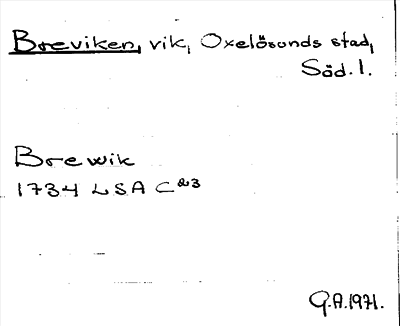 Breviken, vik, Oxelösunds stad,
Söd. l.
Brewik
1734 LSA C 23
G.A. 1971.